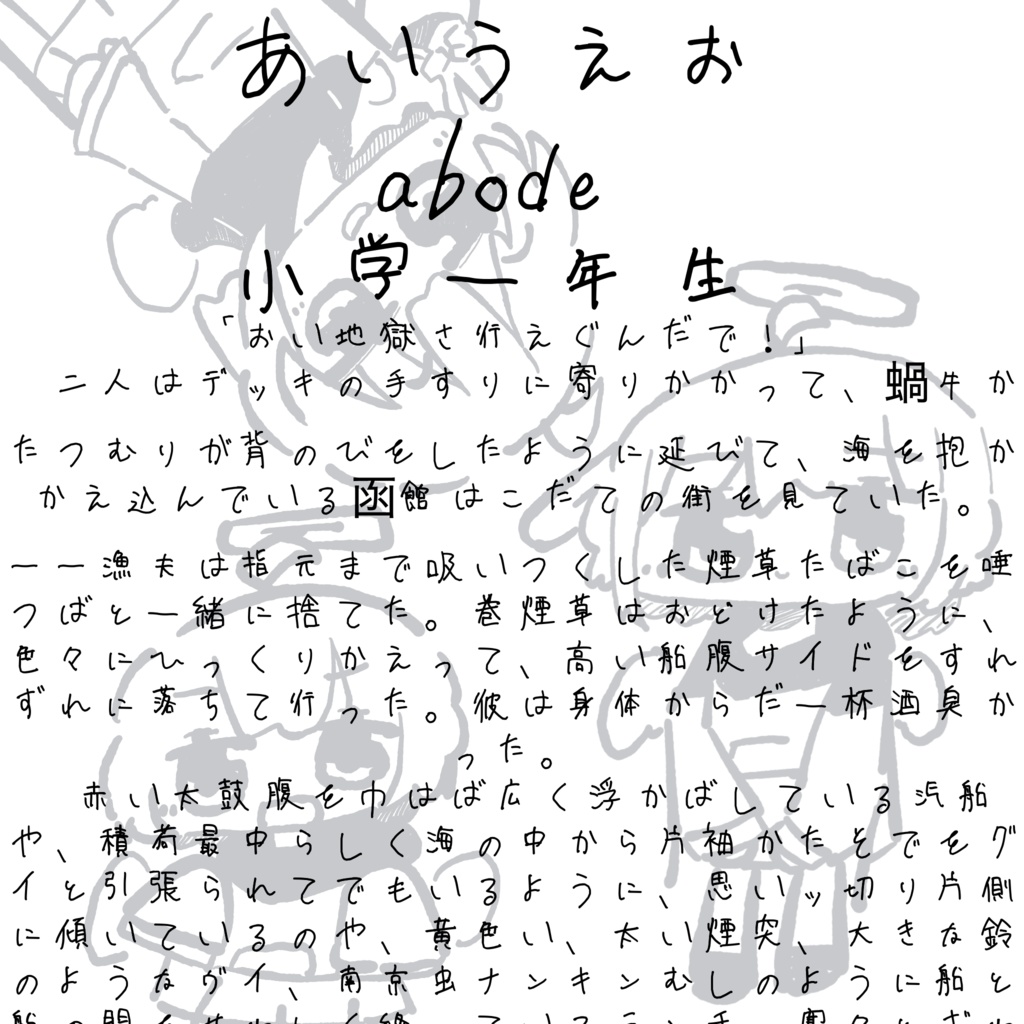 あいうえお
abode
小学一年生
「おい地獄さ行えぐんだで！」
二人はデッキの手すりに寄りかかって、蝸牛か
たつむりが背のびをしたように延びて、海を抱か
かえ込んでいる函館はこだての街を見ていた。
――漁夫は指元まで吸いつくした煙草たばこを唾
つばと一緒に捨てた。巻煙草はおどけたように、
色々にひっくりかえって、高い船腹サイドをすれ
ずれに落ちて行った。彼は身体からだ一杯酒臭か
った。
赤い太鼓腹を巾はば広く浮かばしている汽船
や、積荷最中らしく海の中から片袖かたそでをグ
イと引張られてでもいるように、思いッ切り片側
に傾いているのや、黄色い、太い煙突、大きな鈴
のようなヴイ、南京虫ナンキンむしのように船と